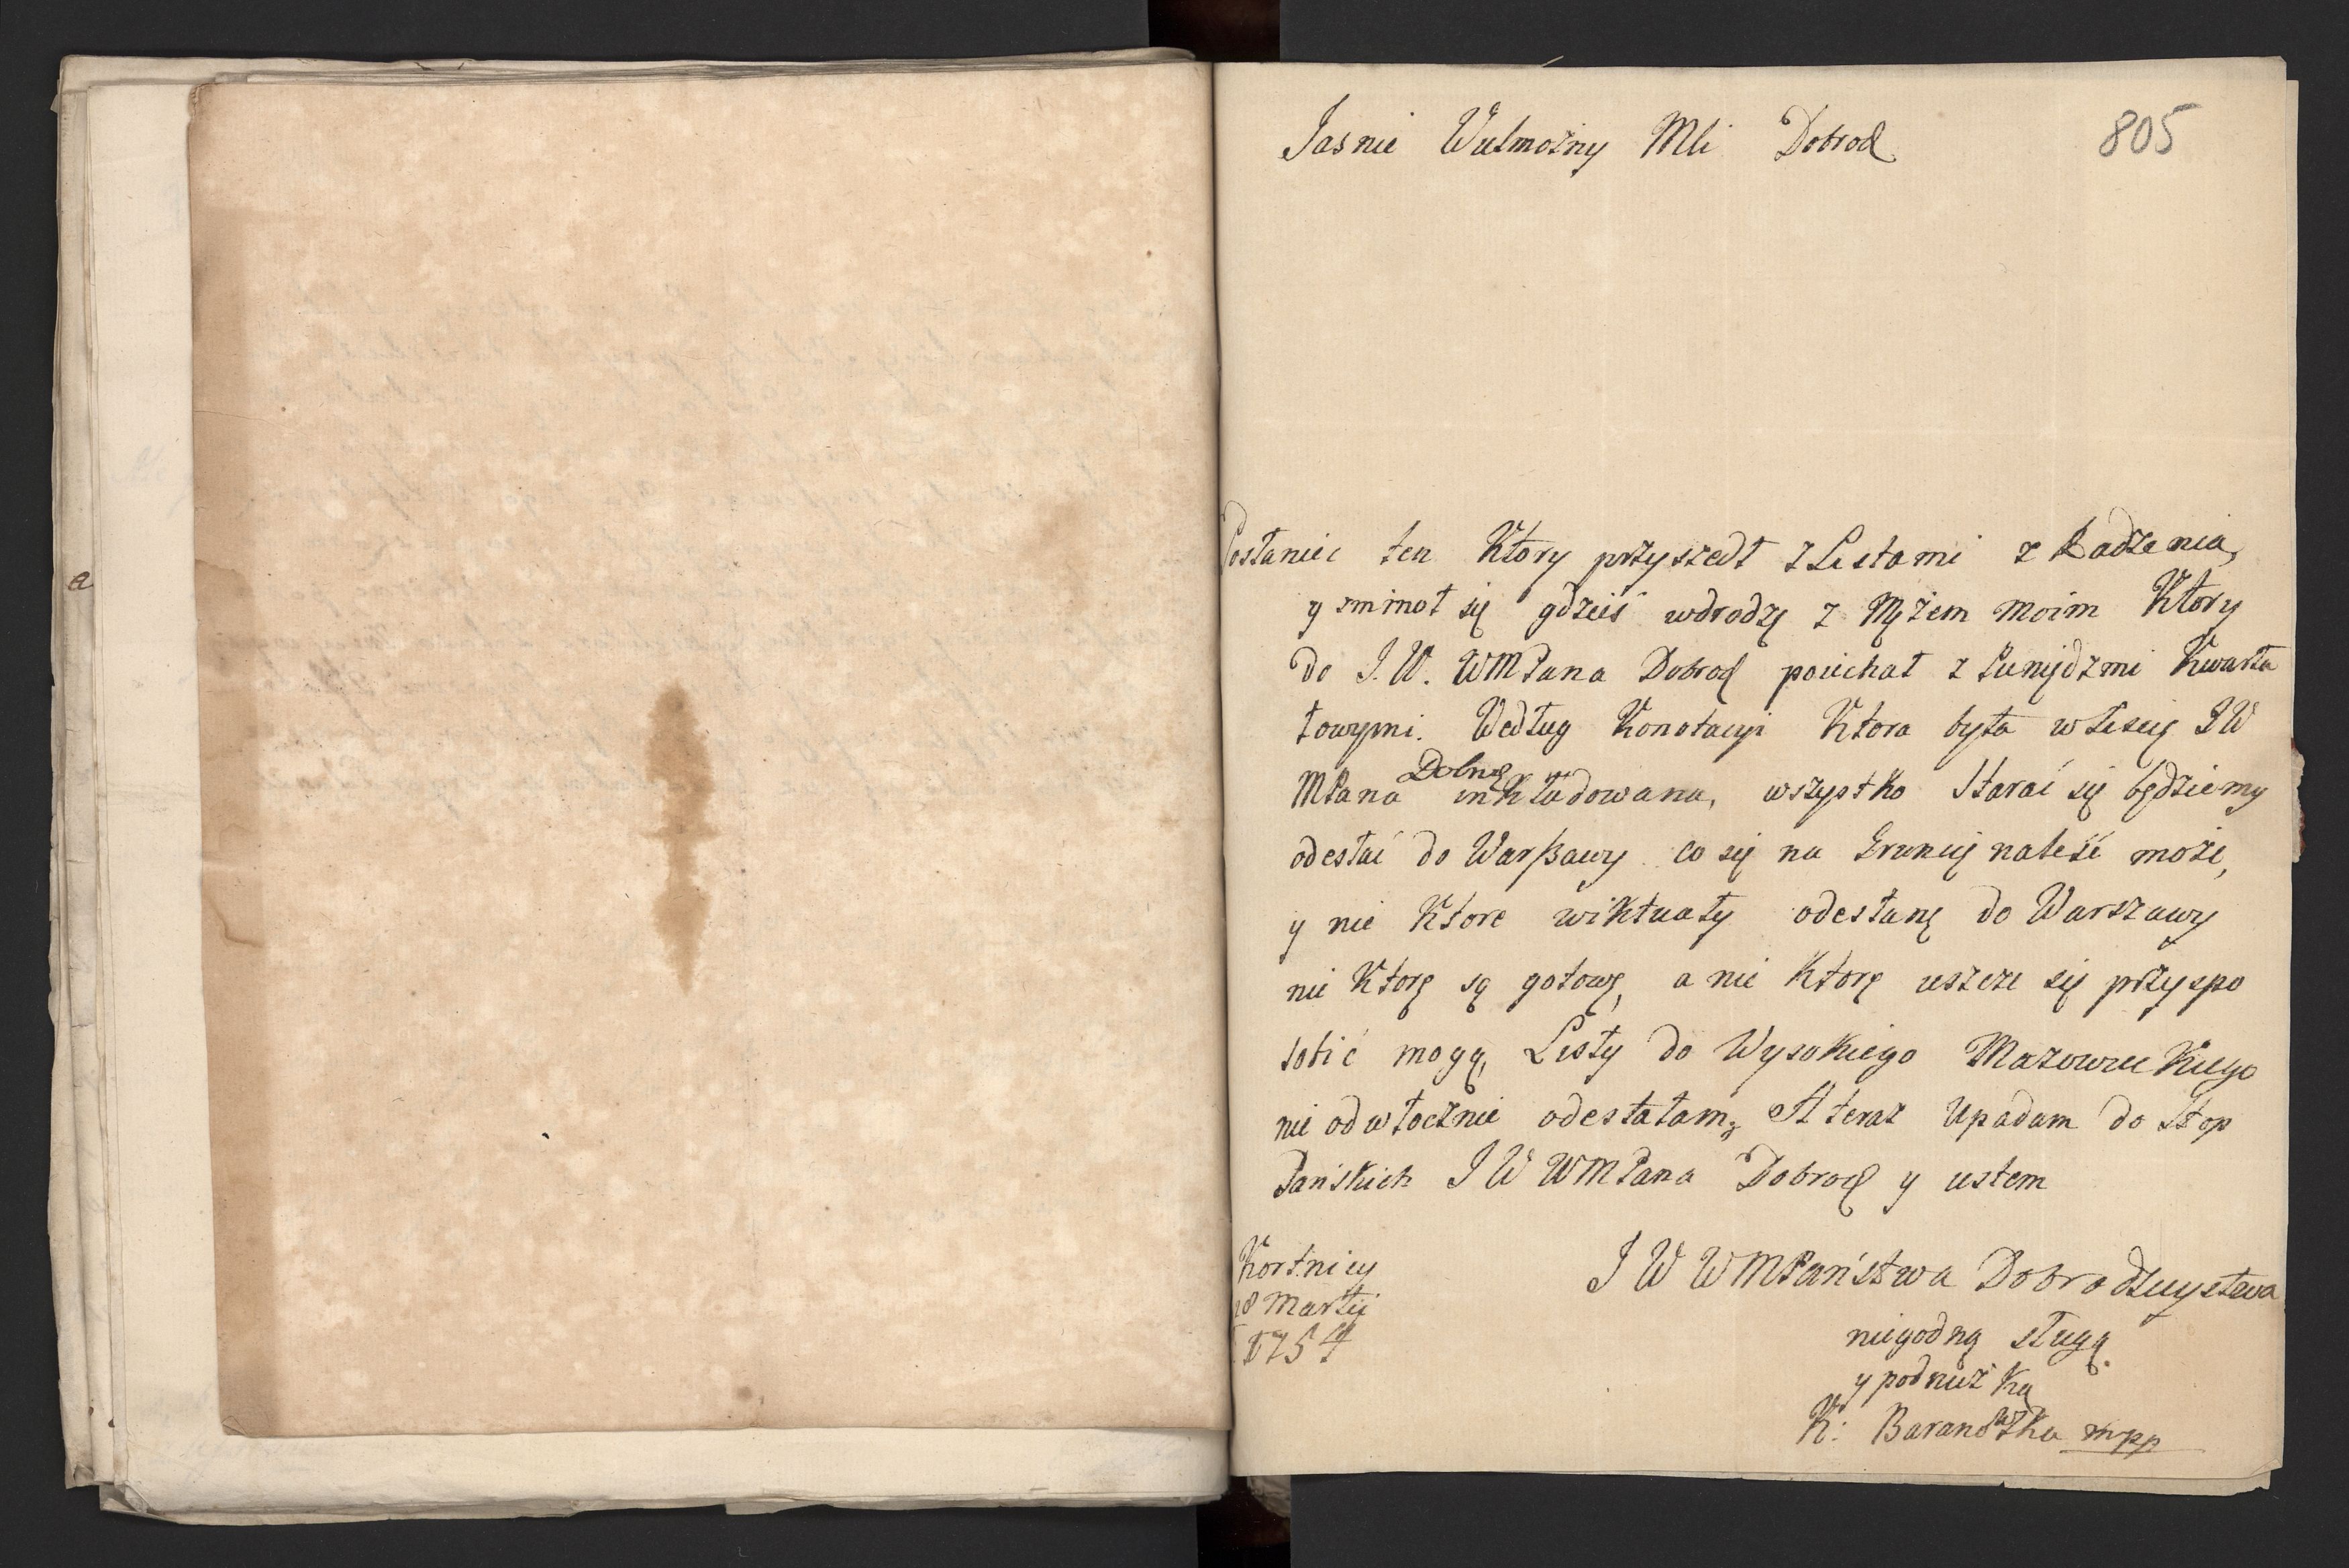 805
Jasnie Wielmożny Mci Dobrod
Posłaniec ten Ktory przyszedł z Listami z Radzenia,
y zminoł się gdzieś wdrodzę z Mężem moim Ktory
do J. W. WMPana Dobrod poiechał z Pieniędzmi Kwarta
łowymi. Według Konotacyi Ktora była w Liscię JW
MPana Dobrę inkludowana, wszystko Starać się będziemy
odesłać do Warszawy co się na Gruncię naleźć może,
y nie Ktore wiktuały odesłanę do Warszawy
nie Ktorę są gotowę, a nie Ktorę ieszcze się przyspo
sobić mogą, Listy do Wysokiego Mazowieckiego
nie odwłocznie odesłałam, A teraz Upadam do Stop
Pańskich J W WMPana Dobrod y iestem
J W WMPaństwa Dobrodzieystwa
niegodną sługą
y podnużką
K: Baranowska mpp
28 Martij
1754
a